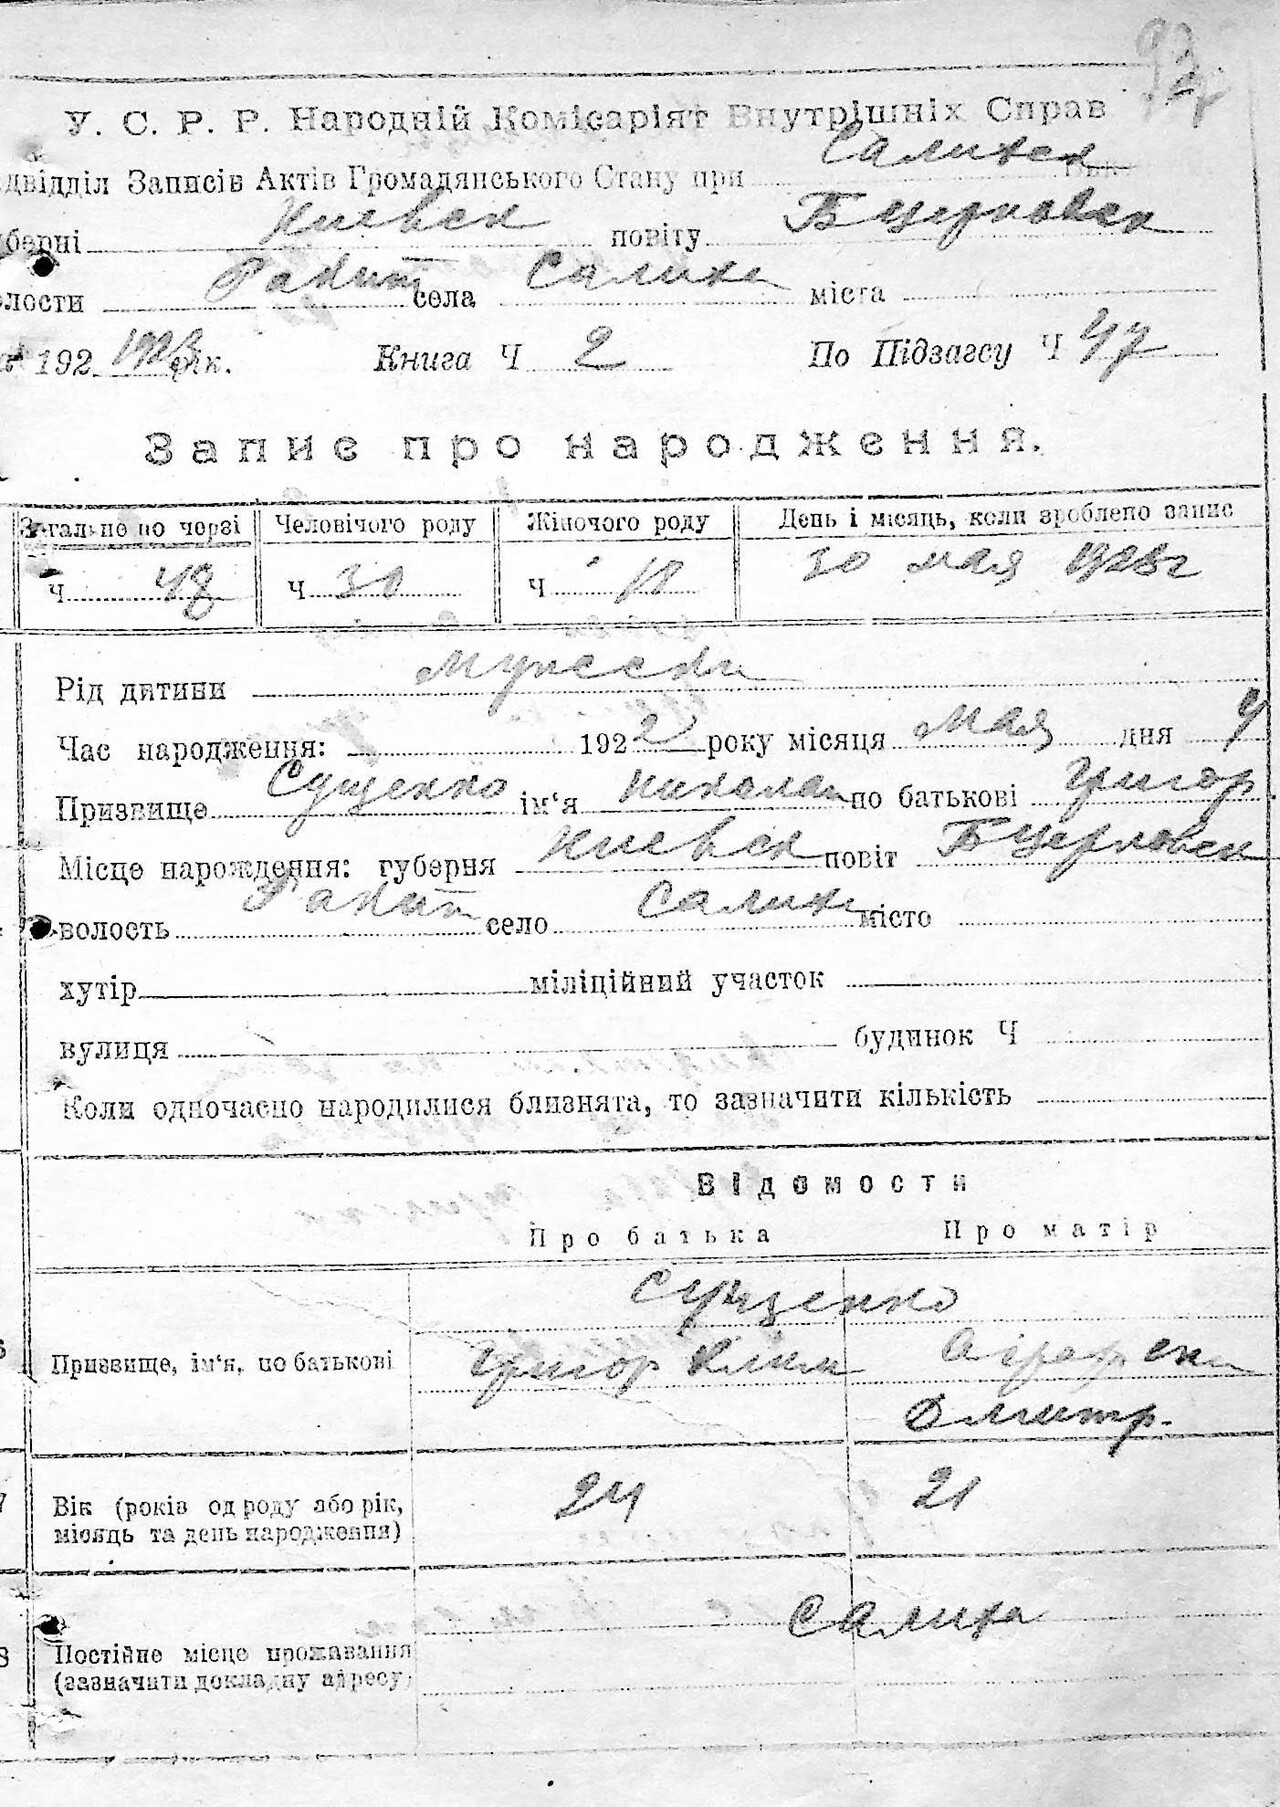 У. С. Р. Р. Народній Комісаріят Внутрішніх Справ
двідділ Записів Актів Громадянського Стану при Салихск
берні Киевск повіту Бцерковск
лости Ракит села Салиха міста
192 рік. Книга Ч 2 По Підзагсу Ч 47
Запис про народження.
Загально по черзі Человічого роду Жіночого роду День і місяць, коли зроблено запис
Ч 48 Ч 30 Ч 18 30 мая
Рід дитини мужеский
Час народження: 1922 року місяця мая дня
Призвище Сущенко ім'я Николай по батькові Григор
Місце народження: губерня Киевск повіт Бцерковск
волость Ракит село Салиха місто
хутір міліційний участок
вулиця будинок Ч
Коли одночасно народилися близнята, то зазначити кількість
Відомости
Про батька Про матір
Сущенко
Призвище, ім'я, по батькові Григор Клим Аграфена
Дмитр.
7 Вік (років од роду або рік, 24 21
місяць та день народження)
Салиха
8 Постійне місце прожавання
(зазначити докладну адресу)